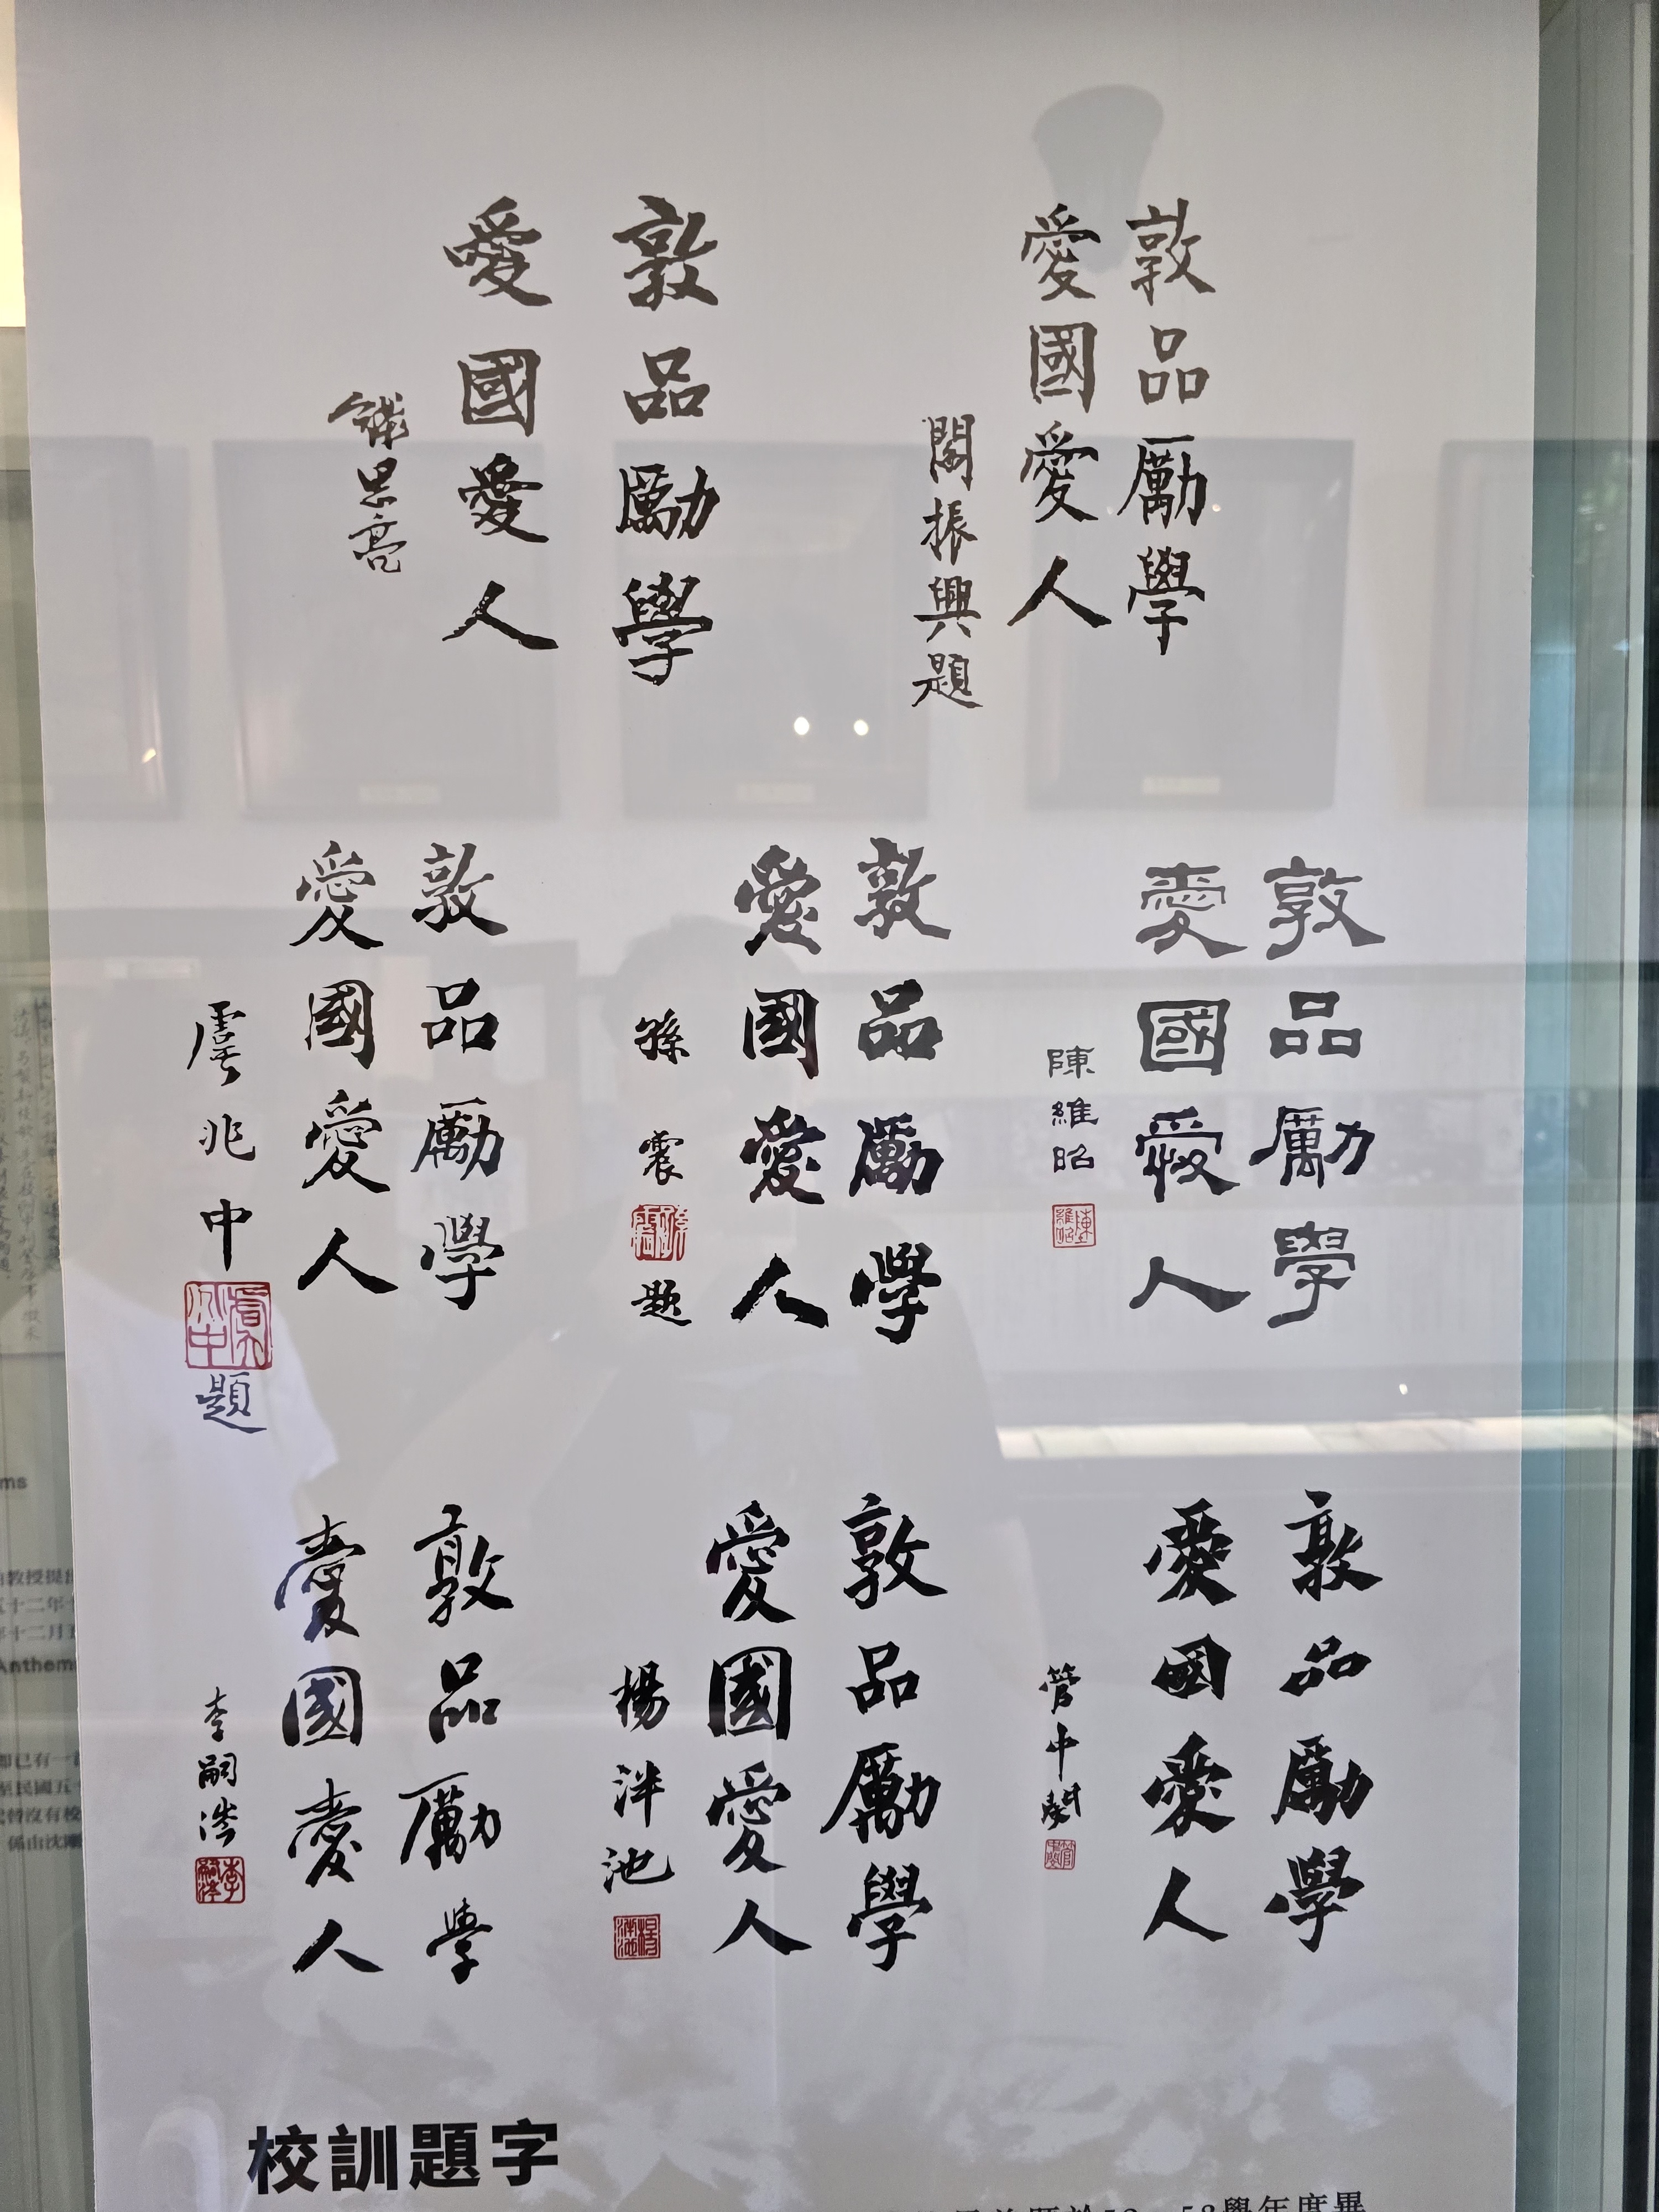 敦品勵學
愛國愛人
閻振興題
敦品勵學
愛國愛人
錢思亮
敦品勵學
愛國愛人
陳維昭
敦品勵學
愛國愛人
孫震
題
敦品勵學
愛國愛人
虞兆中
題
敦品勵學
愛國愛人
管中閔
敦品勵學
愛國愛人
楊泮池
敦品勵學
愛國愛人
李嗣涔
校訓題字
ms
Anthem